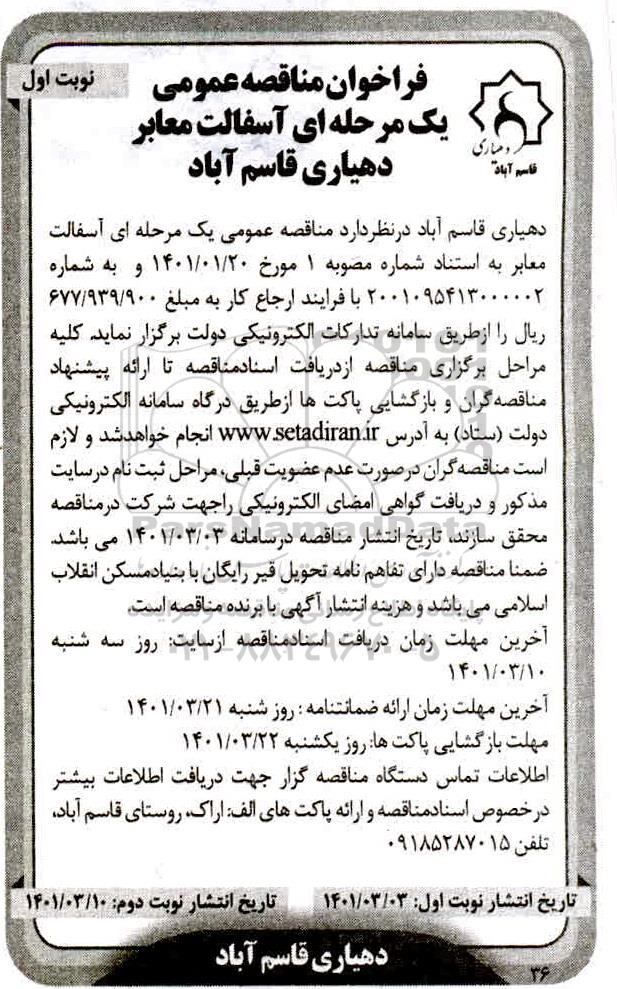 نوبت اول
فراخوان مناقصه عمومی
یک مرحله ای آسفالت معابر
دهیاری قاسم آباد
دهیاری
قاسم آباد
دهیاری قاسم آباد درنظردارد مناقصه عمومی یک مرحله ای آسفالت
معابر به استناد شماره مصوبه ۱ مورخ ۱۴۰۱/۰۱/۲۰ و به شماره
۲۰۰۱۰۹۵۴۱۳۰۰۰۰۰۲ با فرایند ارجاع کار به مبلغ ۶۷۷/۹۳۹/۹۰۰
ریال را ازطریق سامانه تدارکات الکترونیکی دولت برگزار نماید. کلیه
مراحل برگزاری مناقصه ازدریافت اسنادمناقصه تا ارائه پیشنهاد
مناقصه‌گران و بازگشایی پاکت ها ازطریق درگاه سامانه الکترونیکی
دولت (ستاد) به آدرس www.setadiran.ir انجام خواهدشد و لازم
است مناقصه‌گران درصورت عدم عضویت قبلی، مراحل ثبت نام درسایت
مذکور و دریافت گواهی امضای الکترونیکی راجهت شرکت درمناقصه
محقق سازند. تاریخ انتشار مناقصه درسامانه ۱۴۰۱/۰۳/۰۳ می باشد.
ضمنا مناقصه دارای تفاهم نامه تحویل قیر رایگان با بنیادمسکن انقلاب
اسلامی می باشد و هزینه انتشار آگهی با برنده مناقصه است.
آخرین مهلت زمان دریافت اسنادمناقصه ازسایت: روز سه شنبه
۱۴۰۱/۰۳/۱۰
آخرین مهلت زمان ارائه ضمانتنامه : روز شنبه ۱۴۰۱/۰۳/۲۱
مهلت بازگشایی پاکت ها: روز یکشنبه ۱۴۰۱/۰۳/۲۲
اطلاعات تماس دستگاه مناقصه گزار جهت دریافت اطلاعات بیشتر
درخصوص اسنادمناقصه و ارائه پاکت های الف: اراک، روستای قاسم آباد،
تلفن ۰۹۱۸۵۲۸۷۰۱۵
تاریخ انتشار نوبت اول: ۱۴۰۱/۰۳/۰۳ تاریخ انتشار نوبت دوم: ۱۴۰۱/۰۳/۱۰
دهیاری قاسم آباد
۳۶
ParsNamadData